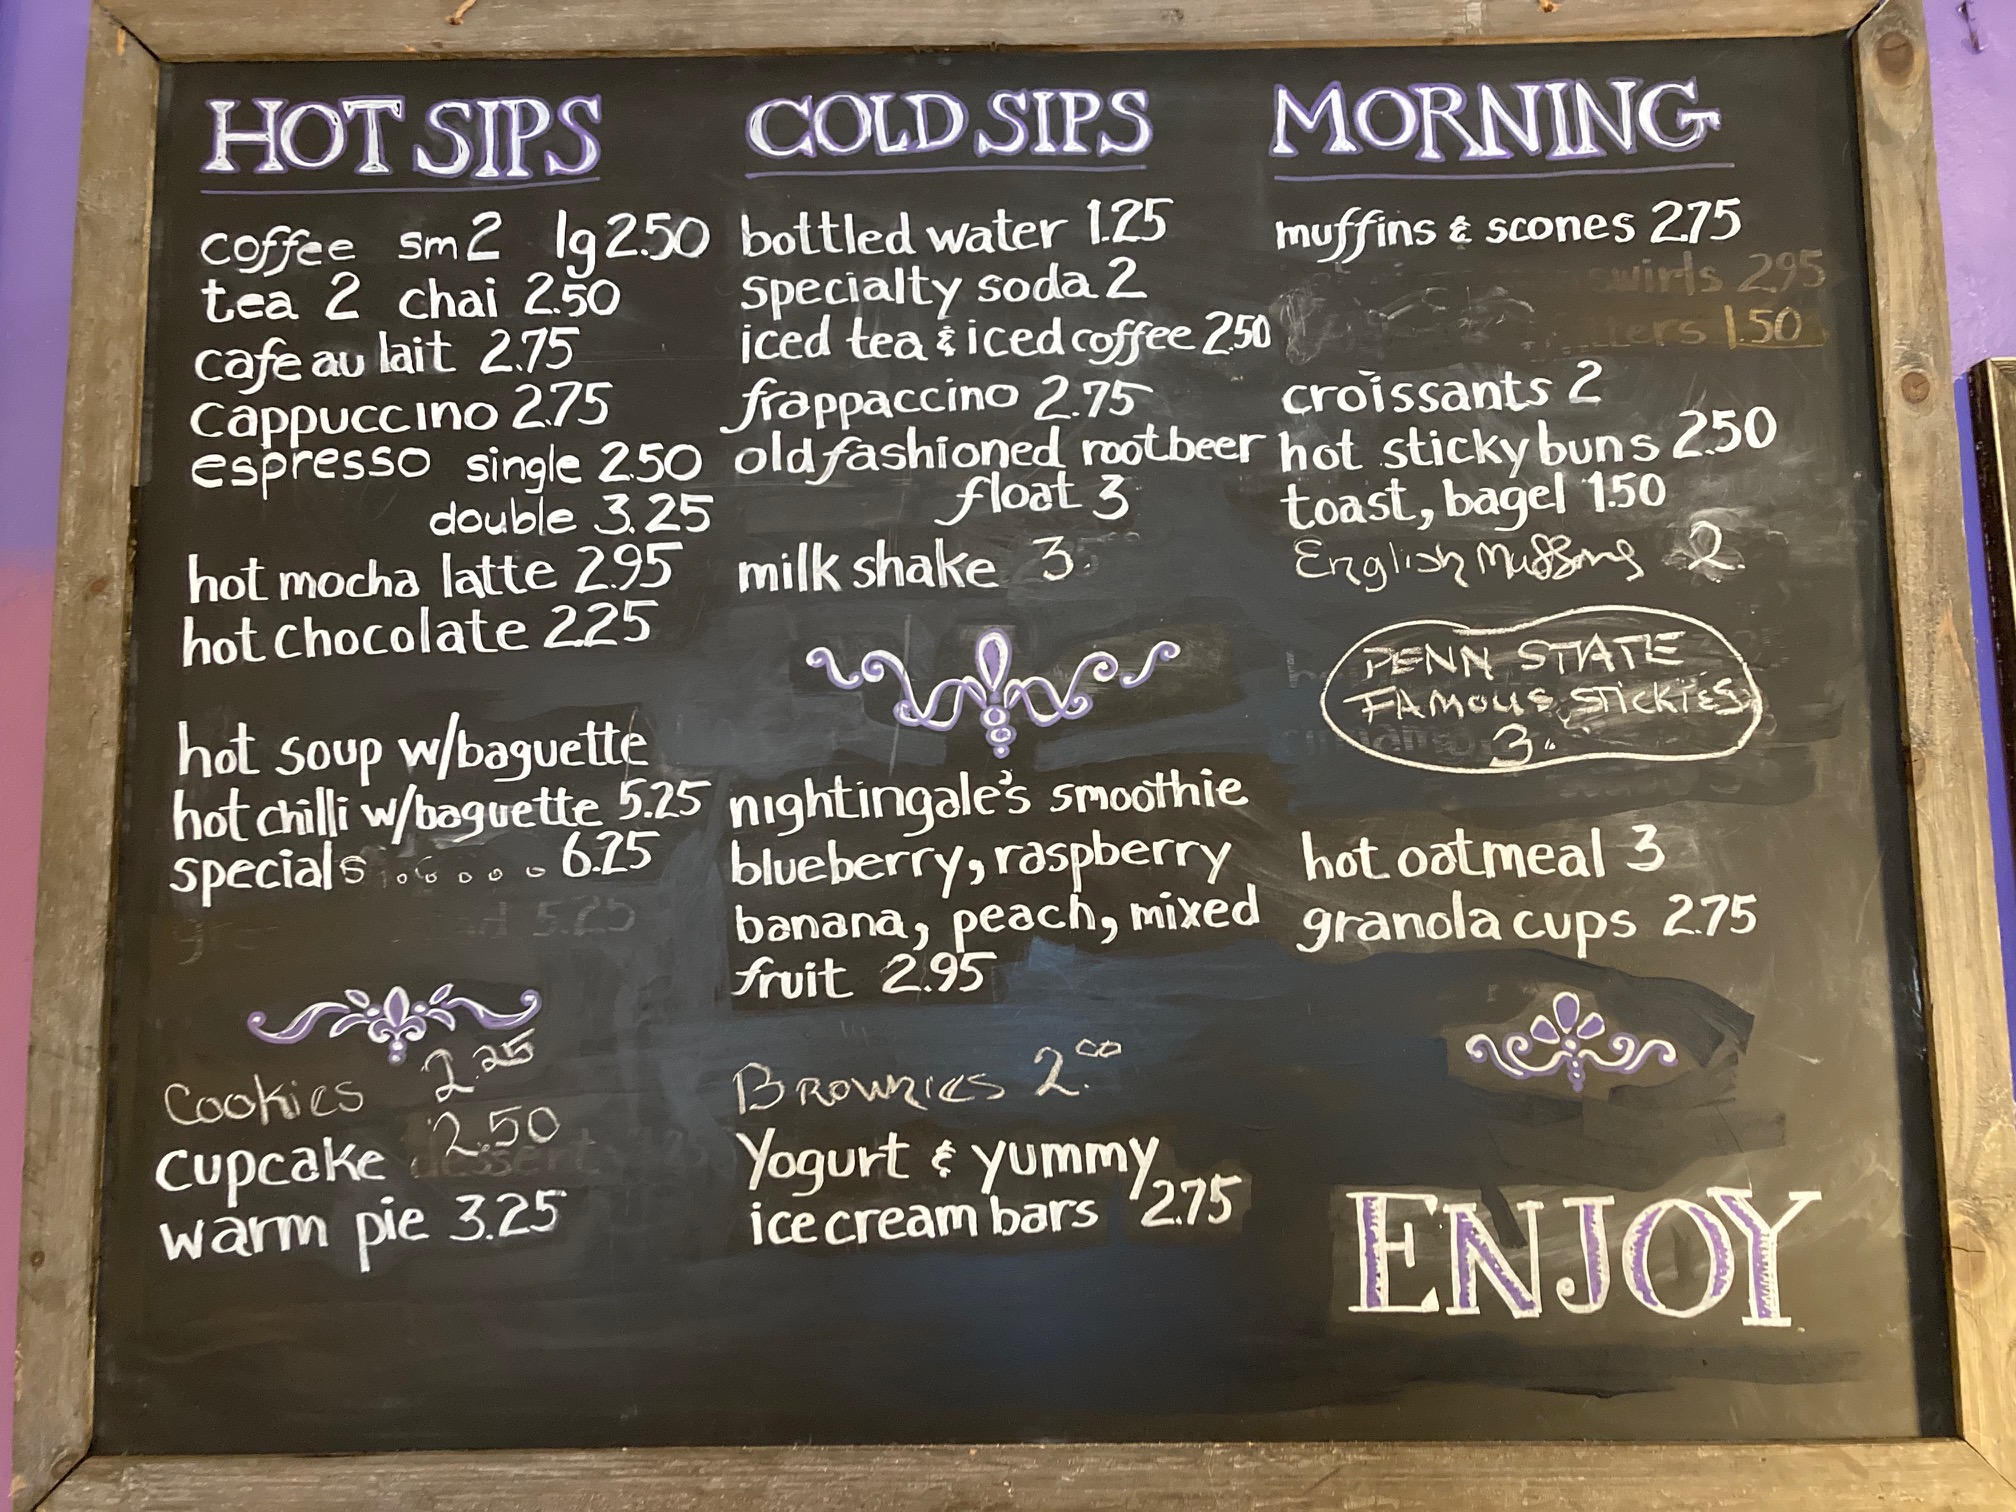 HOT SIPS
coffee sm 2 lg 2.50
tea 2 chai 2.50
cafe au lait 2.75
cappuccino 2.75
espresso single 2.50
double 3.25
hot mocha latte 2.95
hot chocolate 2.25
hot soup w/baguette
hot chilli w/baguette 5.25
specials ...... 6.25
5.25
Cookies 2.25
cupcake 2.50
dessert
warm pie 3.25
COLD SIPS
bottled water 1.25
specialty soda 2
iced tea & iced coffee 2.50
frappaccino 2.75
old fashioned rootbeer
float 3
milk shake 3.
nightingale's smoothie
blueberry, raspberry
banana, peach, mixed
fruit 2.95
BROWNIES 2.00
Yogurt & yummy
ice cream bars 2.75
MORNING
muffins & scones 2.75
swirls 2.95
1.50
croissants 2
hot sticky buns 2.50
toast, bagel 1.50
English Muffins 2.
PENN STATE
FAMOUS STICKIES
3.
hot oatmeal 3
granola cups 2.75
ENJOY